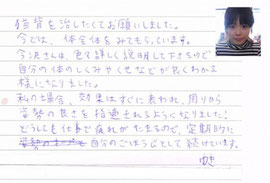 猫背を治したくてお願いしました。
今では、体全体をみてもらっています。
今沢さんは、色々詳しく説明して下さるので
自分の体のしくみやくせなどが良くわかる
様になりました。
私の場合、効果はすぐに表われ、周りから
姿勢の良さを指摘されるようになりました!
どうしても仕事で疲れがたまるので、定期的に
自分のごほうびとして続けています。
ゆき